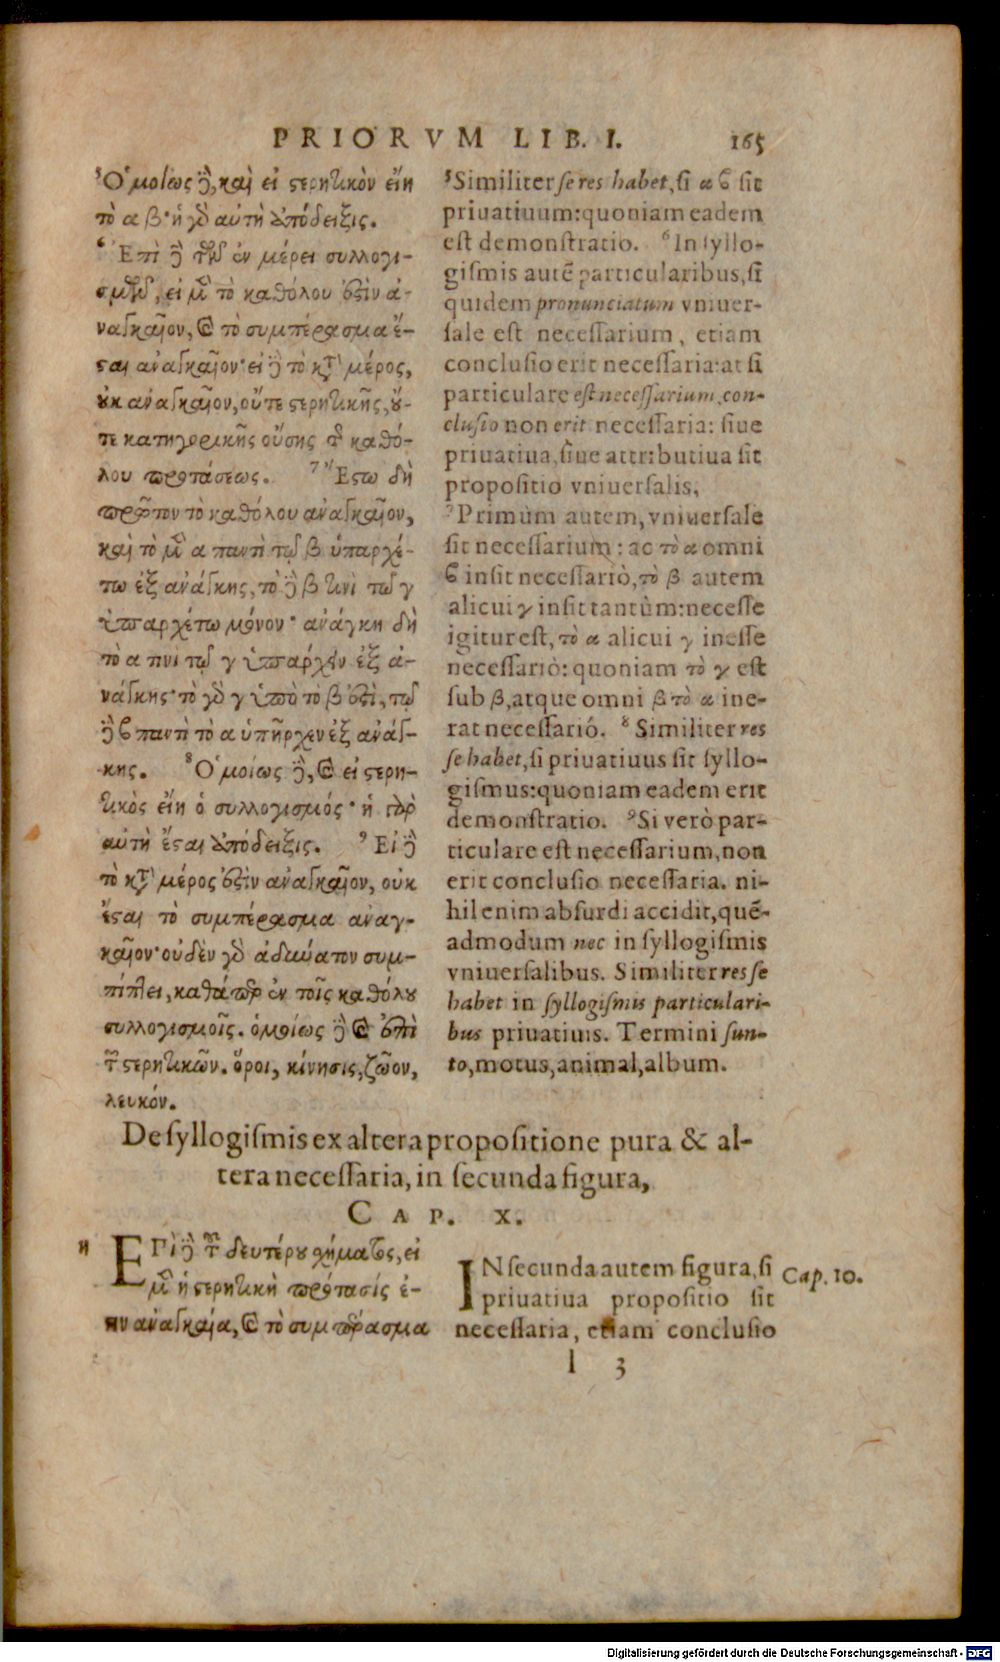 PRIORVM LIB. I. 165
⁵Ὁμοίως δὲ, καὶ εἰ στερητικὸν εἴη
τὸ α β· ἡ γὰρ αὐτὴ ἀπόδειξις.
⁶ Ἐπὶ δὲ τῶν ἐν μέρει συλλογι-
σμῶν, εἰ μὲν τὸ καθόλου ἐστὶν ἀ-
ναγκαῖον, καὶ τὸ συμπέρασμα ἔ-
σται ἀναγκαῖον· εἰ δὲ τὸ κατὰ μέρος,
οὐκ ἀναγκαῖον, οὔτε στερητικῆς, οὔ-
τε κατηγορικῆς οὔσης τῆς καθό-
λου προτάσεως. ⁷ Ἔστω δὴ
πρῶτον τὸ καθόλου ἀναγκαῖον,
καὶ τὸ μὲν α παντὶ τῷ β ὑπαρχέ-
τω ἐξ ἀνάγκης, τὸ δὲ β τινὶ τῷ γ
ὑπαρχέτω μόνον· ἀνάγκη δὴ
τὸ α τινὶ τῷ γ ὑπάρχειν ἐξ ἀ-
νάγκης· τὸ γὰρ γ ὑπὸ τὸ β ἐστὶ, τῷ
δὲ ϐ παντὶ τὸ α ὑπῆρχεν ἐξ ἀνάγ-
κης. ⁸Ὁμοίως δὲ, καὶ εἰ στερη-
τικὸς εἴη ὁ συλλογισμός· ἡ γὰρ
αὐτὴ ἔσται ἀπόδειξις. ⁹ Εἰ δὲ
τὸ κατὰ μέρος ἐστὶν ἀναγκαῖον, οὐκ
ἔσται τὸ συμπέρασμα ἀναγ-
καῖον· οὐδὲν γὰρ ἀδύνατον συμ-
πίπτει, καθάπερ ἐν τοῖς καθόλου
συλλογισμοῖς. ὁμοίως δὲ καὶ ἐπὶ
τῶν στερητικῶν. ὅροι, κίνησις, ζῶον,
λευκόν.
⁵Similiter se res habet, si α ϐ sit
priuatiuum: quoniam eadem
est demonstratio. ⁶In syllo-
gismis autē particularibus, si
quidem pronunciatum vniuer-
sale est necessarium, etiam
conclusio erit necessaria: at si
particulare est necessarium, con-
clusio non erit necessaria: siue
priuatiua, siue attributiua sit
propositio vniuersalis,
⁷Primùm autem, vniuersale
sit necessarium: ac τὸ α omni
ϐ insit necessariò, τὸ β autem
alicui γ insit tantùm: necesse
igitur est, τὸ α alicui γ inesse
necessariò: quoniam τὸ γ est
sub β, atque omni β τὸ α ine-
rat necessarió. ⁸ Similiter res
se habet, si priuatiuus sit syllo-
gismus: quoniam eadem erit
demonstratio. ⁹Si verò par-
ticulare est necessarium, non
erit conclusio necessaria. ni-
hil enim absurdi accidit, quē-
admodum nec in syllogismis
vniuersalibus. Similiter res se
habet in syllogismis particulari-
bus priuatiuis. Termini sun-
to, motus, animal, album.
De syllogismis ex altera propositione pura & al-
tera necessaria, in secunda figura,
CAP. X.
η ΕΠὶ δὲ τοῦ δευτέρου σχήματος, εἰ
μὲν ἡ στερητικὴ πρότασίς ἐ-
στιν ἀναγκαία, καὶ τὸ συμπέρασμα
IN secunda autem figura, si
priuatiua propositio sit
necessaria, etiam conclusio
Cap. 10.
l 3
Digitalisierung gefördert durch die Deutsche Forschungsgemeinschaft - DFG